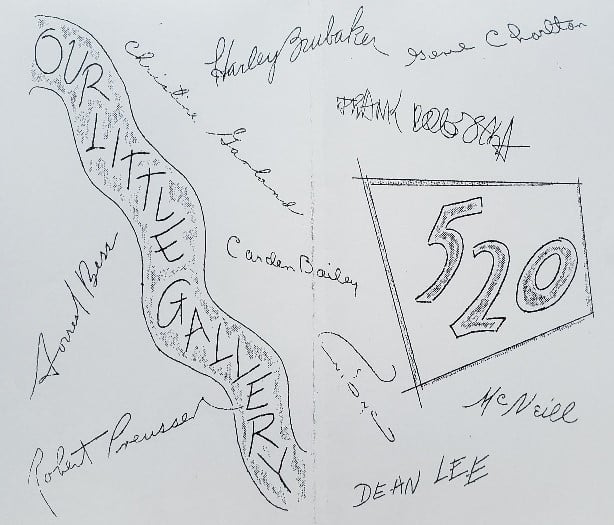 OUR LITTLE GALLERY
Harley Brubaker
Gene Charlton
Christine Garland
FRANK DOLEJSKA
520
Carden Bailey
Forrest Bess
McNeill
Robert Preusser
DEAN LEE